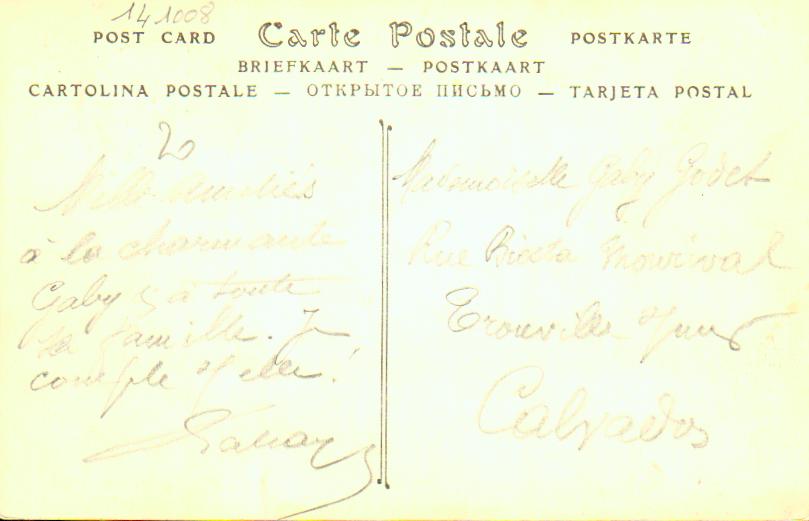 141008
POST CARD Carte Postale POSTKARTE
BRIEFKAART — POSTKAART
CARTOLINA POSTALE — ОТКРЫТОЕ ПИСЬМО — TARJETA POSTAL
Mille Amitiés
à la charmante
Gaby & à toute
sa famille. Je
compte
Mademoiselle Gaby Godet
Rue Biesta Monrival
Trouville
Calvados